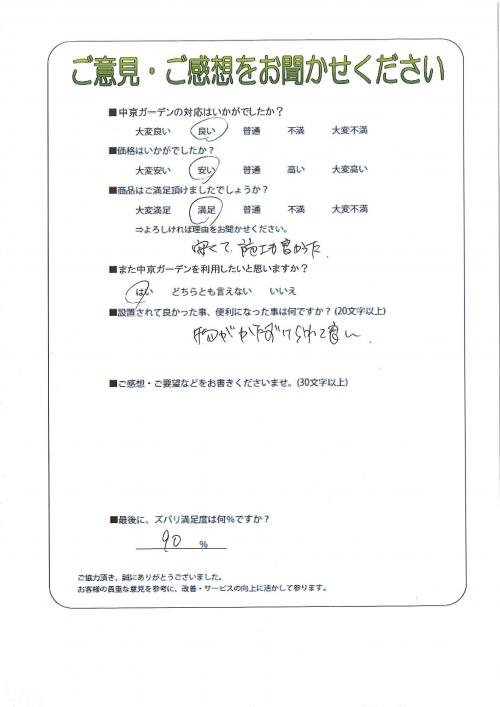 ご意見・ご感想をお聞かせください
■中京ガーデンの対応はいかがでしたか？
大変良い 良い 普通 不満 大変不満
■価格はいかがでしたか？
大変安い 安い 普通 高い 大変高い
■商品はご満足頂けましたでしょうか？
大変満足 満足 普通 不満 大変不満
⇒よろしければ理由をお聞かせください。
安くて、施工も良かった、
■また中京ガーデンを利用したいと思いますか？
はい どちらとも言えない いいえ
■設置されて良かった事、便利になった事は何ですか？(20文字以上)
がかたずけられて良い、
■ご感想・ご要望などをお書きくださいませ。(30文字以上)
■最後に、ズバリ満足度は何％ですか？
90 %
ご協力頂き、誠にありがとうございました。
お客様の貴重な意見を参考に、改善・サービスの向上に活かして参ります。